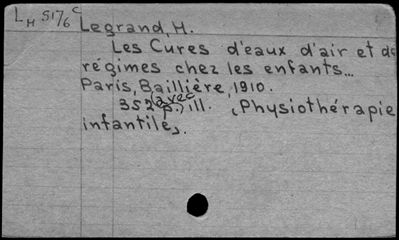 LH 5176 C
Legrand, H.
Les Cures d'eaux d'air et de
régimes chez les enfants...
Paris, Baillière, 1910.
352 p., (avec ill. (Physiothérapie
infantile).